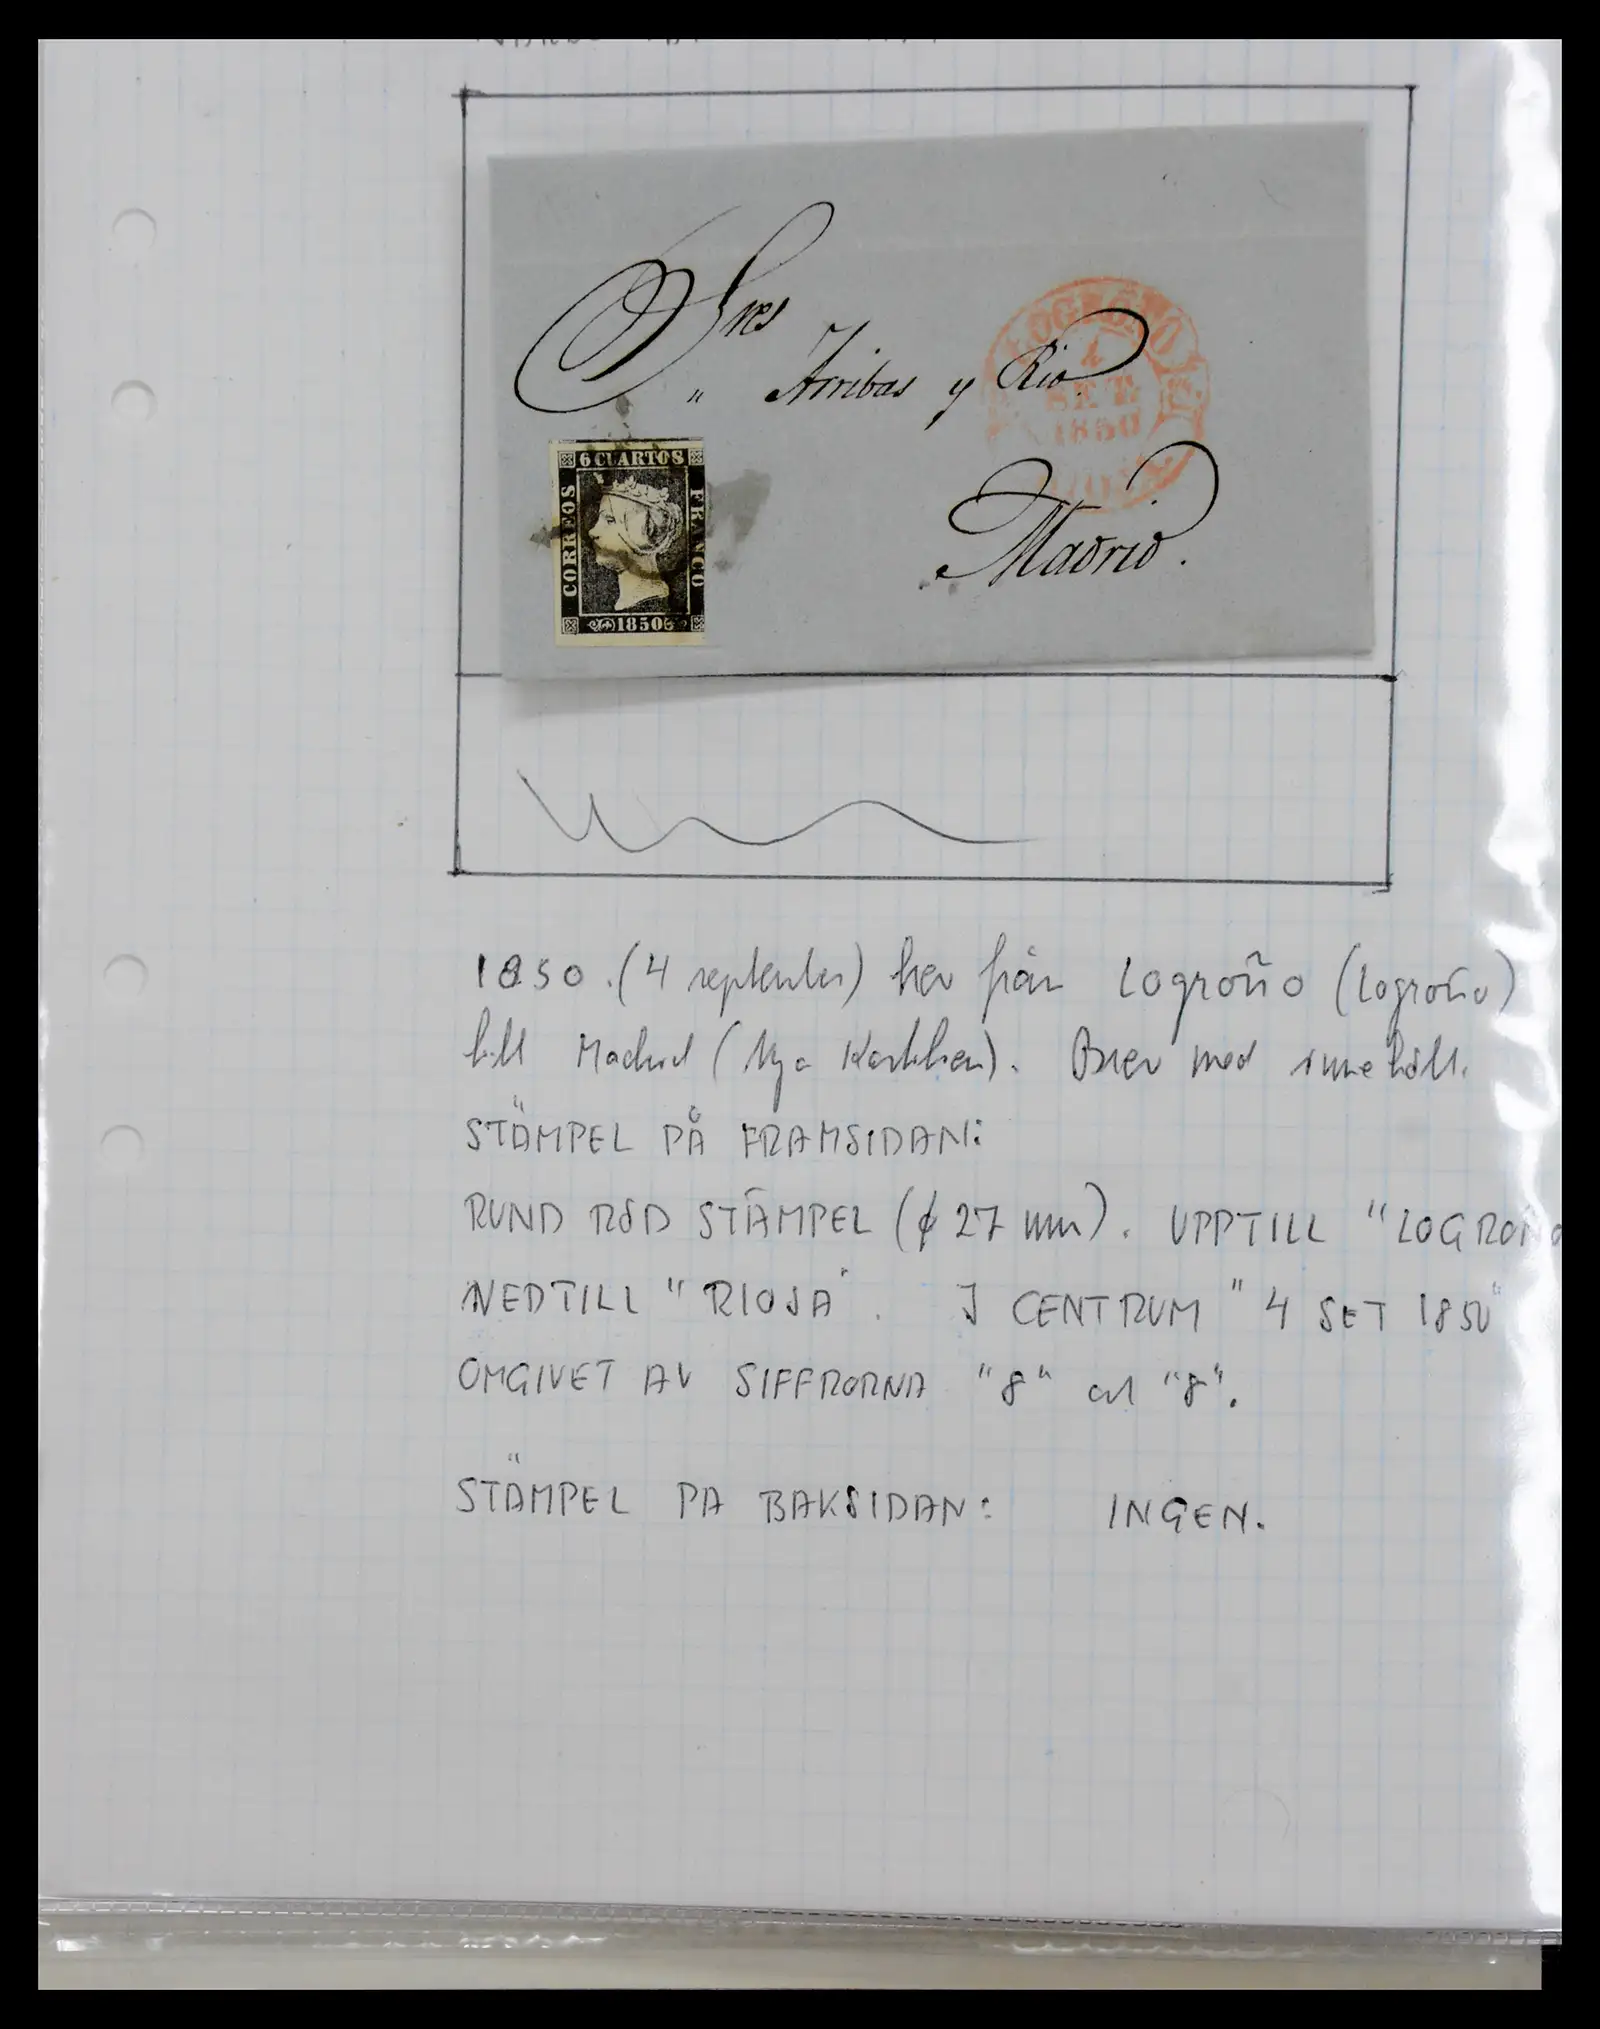 Sres
" Arribas y Rio
LOGROÑO
4
SET
1850
RIOJA
Madrid.
6 CUARTOS
CORREOS
FRANCO
1850
1850. (4 september) brev från Logroño (Logroño)
till Madrid (Nya Kastilien). Brev med innehåll.
STÄMPEL PÅ FRAMSIDAN:
RUND RÖD STÄMPEL (ϕ 27 mm). UPPTILL "LOGROÑO
NEDTILL "RIOJA". I CENTRUM "4 SET 1850"
OMGIVET AV SIFFRORNA "8" och "8".
STÄMPEL PA BAKSIDAN: INGEN.